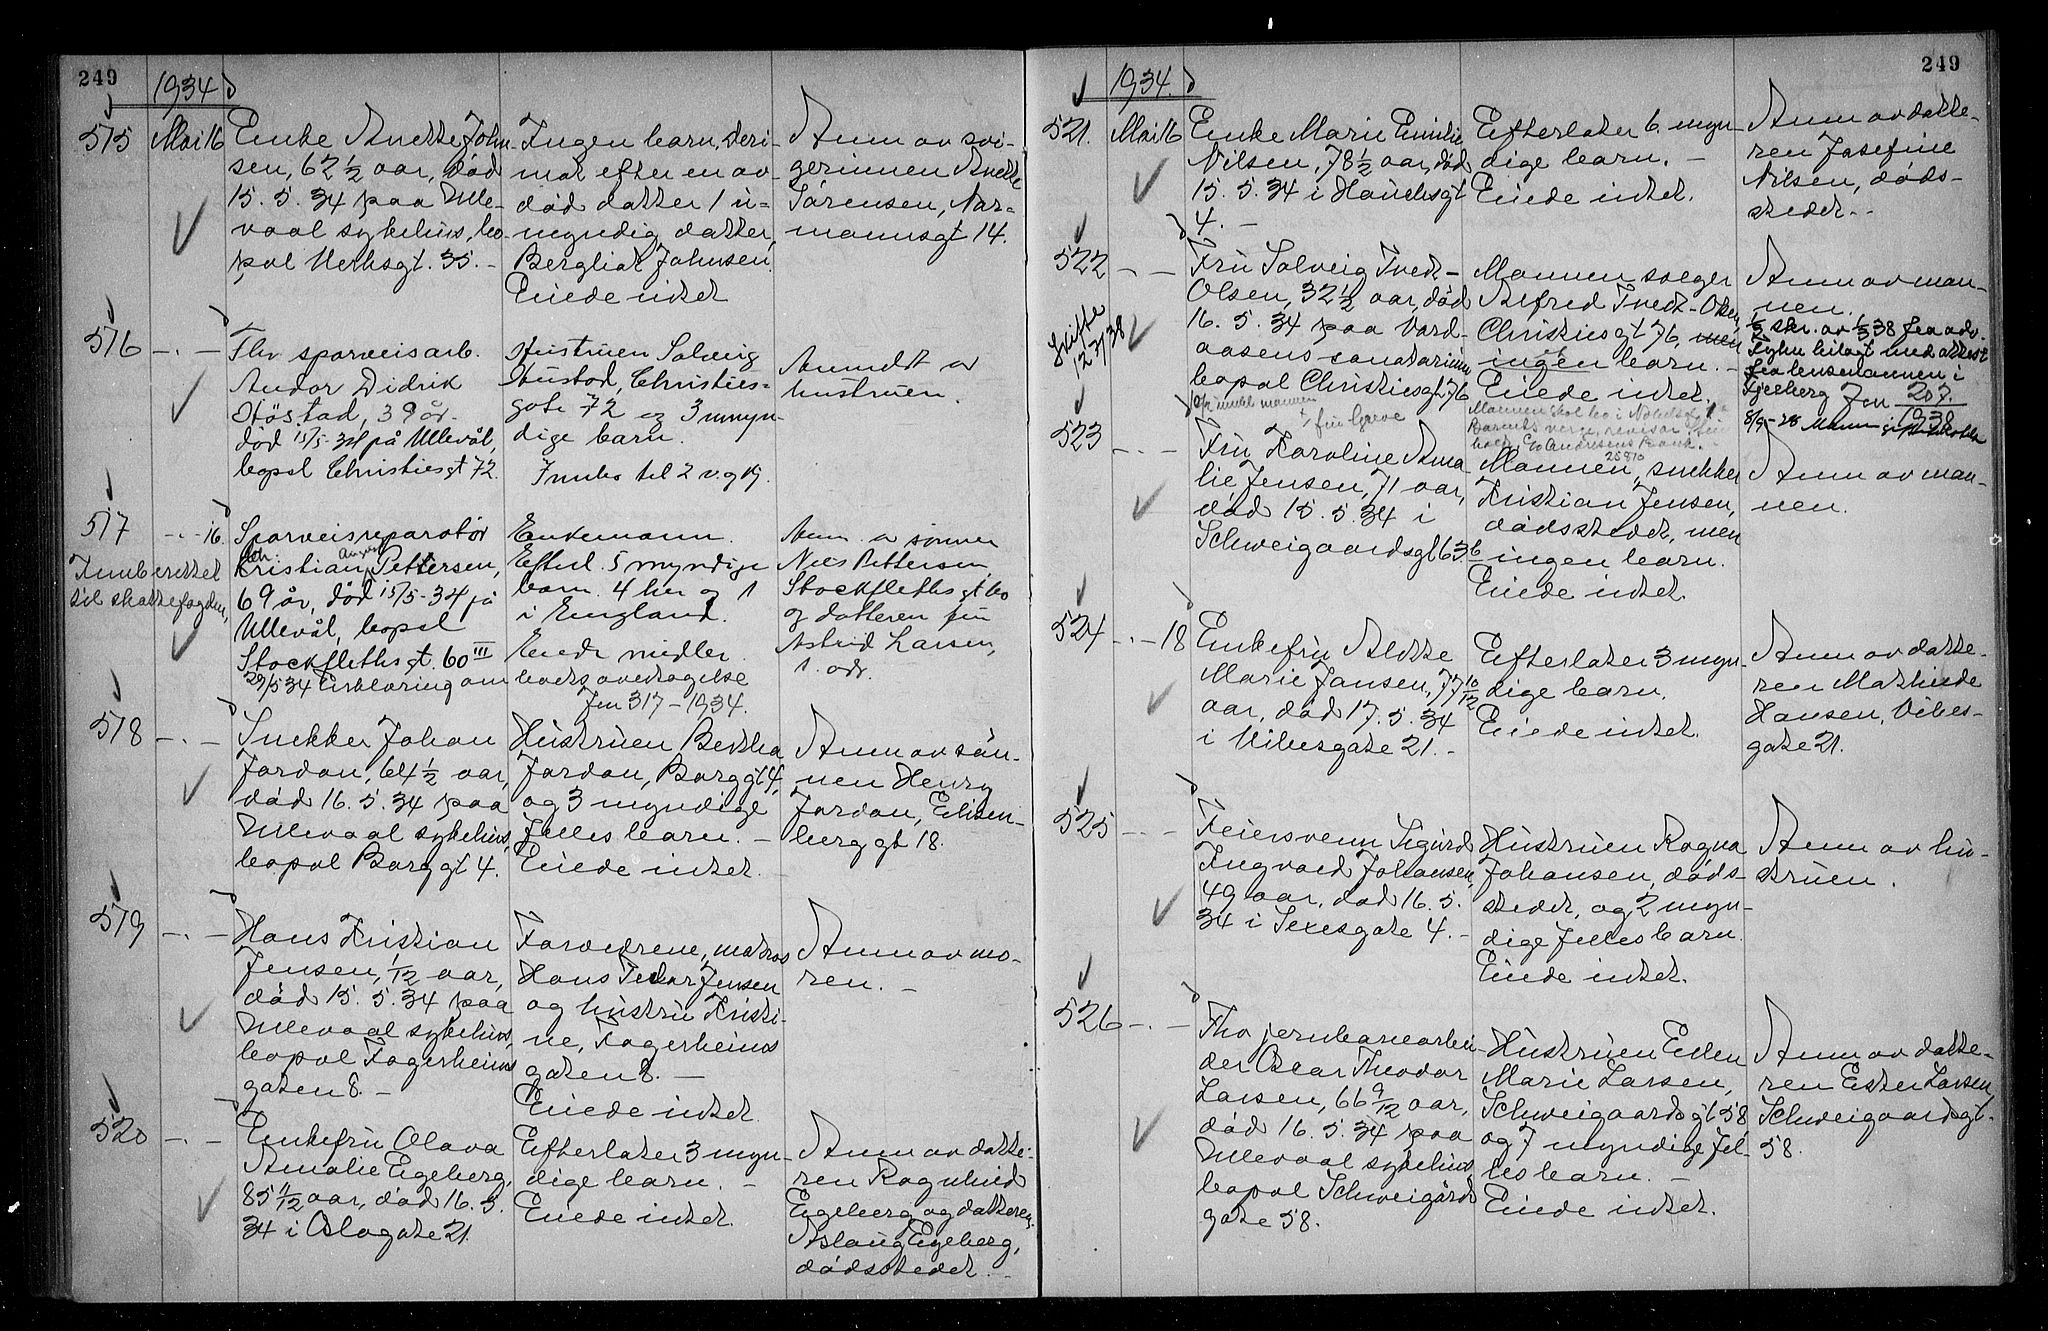 249
1934
515
Mai 16
Enke Anette John-
sen, 62 1/2 aar, död
15.5.34 paa Ulle-
vaal sykehus, bo-
pæl Verksgt. 35. -
Ingen barn, deri-
mot efter en av-
död datter 1 u-
myndig datter,
Bergliot Johnsen.
Eiede intet
Anm av svi-
gerinnen Anette
Sörensen, Nor-
mannsgt 14.
516
- . -
Fhv. sporveisarb.
Andor Didrik
Höstad, 39 år.
död 15/5-34 på Ullevål,
bopel Christiesgt 72.
Hustruen Solveig
Hustad, Christies-
gate 72 og 3 umyn-
dige barn.
Innb. til 2 v. og
Anmeldt av
hustruen.
517
- . - 16.
Innberettet
til skattefogden,
Sporveisreparatör
Joh.
Kristian August Pettersen,
69 år, död 15/5-34 på
Ullevål, bopel
Stockflethsgt. 60 III
29/5 34 Erklæring om
Enkemann.
Efterl. 5 myndige
barn. 4 her og 1
i England.
Eiende midler.
boets overtagelse
Jnr 317 - 1934.
Anm. av sönnen
Nils Pettersen,
Stockflethsgt 60
og datteren fru
Astrid Larsen,
s. adr.
518
- . -
Snekker Johan
Jordan, 64 1/2 aar,
död 16.5.34 paa
Ullevaal sykehus,
bopæl Borggt 4.
Hustruen Bertha
Jordan, Borggt 4,
og 3 myndige
felles barn. -
Eiede intet.
Anm av sön-
nen Henry
Jordan, Eilsen-
berg gt 18.
519
- . -
Hans Kristian
Jensen, 1/12 aar,
död 15.5.34 paa
Ullevaal sykehus,
bopæl Fagerheims
gaten 8. -
Forældrene, matros
Hans Teodor Jensen
og hustru Kristi-
ne, Fagerheims
gaten 8. -
Eiede intet.
Anm av mo-
ren. -
520
- . -
Enkefru Olava
Amalie Egeberg,
85 11/12 aar, död 16.5.
34 i Oslogate 21
Efterlater 3 myn-
dige barn. -
Eiede intet.
Anm av datte-
ren Ragnhild
Egeberg og datteren
Aslaug Egeberg,
dödsstedet. -
249
1934.
521.
Mai 16
Enke Marie Emilie
Nilsen, 78 1/2 aar, död
15.5.34 i Hauchsgt
4. -
Efterlater 6 myn-
dige barn. -
Eiede intet.
Anm av datte-
ren Josefine
Nilsen, döds-
stedet. -
522
- . -
Skifte
12 7/38
Fru Solveig Tvedt-
Olsen, 32 1/2 aar, död
16.5.34 paa Vard-
aasens sanatorium
bopæl Christiesgt 76
Mannen sælger
Alfred Tvedt-Olsen,
Christiesgt 76, men
ingen barn. -
Eiede intet.
Anm av man-
nen.
fra lensmannen i
Jnr 207
1938
523
- . -
Fru Karoline Ama-
lie Jensen, 71 aar,
död 15.5.34 i
Schweigaardsgt 63 b
Mannen, snekker
Kristian Jensen,
dödsstedet, men
ingen barn.
Eiede intet.
Anm av man-
nen.
524
- . - 18
Enkefru Alette
Marie Jansen, 77 10/12
aar, död 17.5.34
i Vibesgate 21. -
Efterlater 3 myn-
dige barn.
Eiede intet.
Anm av datte-
ren Mathilde
Hansen, Vibes-
gate 21.
525
- . -
Feiersvenn Sigurd
Ingvard Johansen,
49 aar, död 16.5.
34 i Sexesgate 4. -
Hustruen Ragna
Johansen, döds-
stedet, og 2 myn-
dige felles barn.
Eiede intet.
Anm av hu-
struen.
526
- . -
Fhv jernbanearbei-
der Oscar Theodor
Larsen, 66 9/12 aar,
död 16.5.34 paa
Ullevaal sykehus,
bopæl Schweigårds
gate 58.
Hustruen Ellen
Marie Larsen,
Schweigaardsgt 58
og 7 myndige fel-
les barn. -
Eiede intet.
Anm av datte-
ren Ester Larsen,
Schweigaardsgt.
58.